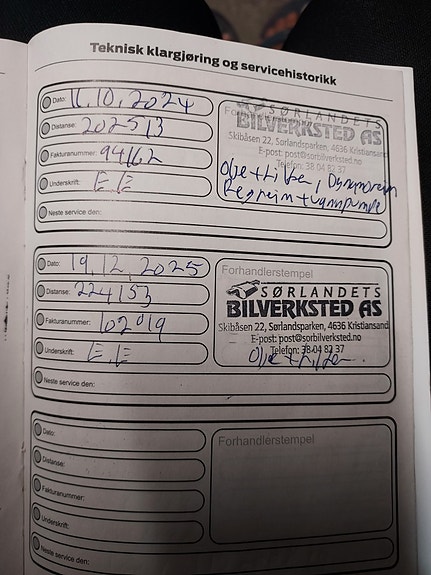 Teknisk klargjøring og servicehistorikk
Dato: 11.10.2024
Distanse: 202513
Fakturanummer: 94162
Underskrift: E.E
Neste service den:
SØRLANDETS
BILVERKSTED AS
Skibåsen 22, Sørlandsparken, 4636 Kristiansand
E-post: post@sorbilverksted.no
Telefon: 38 04 82 37
Olje + Filter,
Regreim + vannpumpe
Dato: 19.12.2025
Distanse: 224153
Fakturanummer: 102019
Underskrift: E.E
Neste service den:
Forhandlerstempel
SØRLANDETS
BILVERKSTED AS
Skibåsen 22, Sørlandsparken, 4636 Kristiansand
E-post: post@sorbilverksted.no
Telefon: 38 04 82 37
Olje + Filter.
Dato:
Distanse:
Fakturanummer:
Underskrift:
Neste service den:
Forhandlerstempel